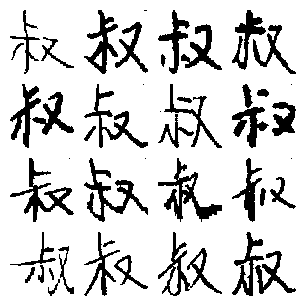 叔叔叔叔
叔叔叔叔
叔叔叔叔
叔叔叔叔